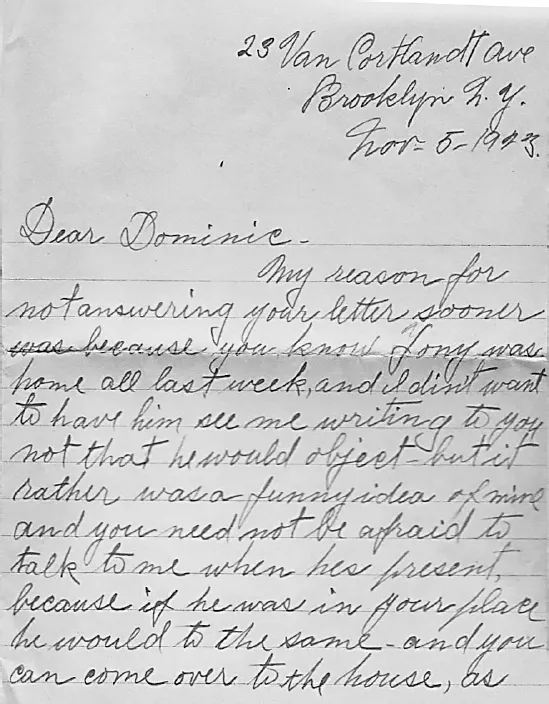 23 Van Cortlandt Ave
Brooklyn N. Y.
Nov- 5- 1943.
Dear Dominic -
My reason for
not answering your letter sooner
was because you know Tony was
home all last week, and I didnt want
to have him see me writing to you
not that he would object - but it
rather was a funny idea of mine
and you need not be afraid to
talk to me when hes present,
because if he was in your place
he would to the same - and you
can come over to the house, as